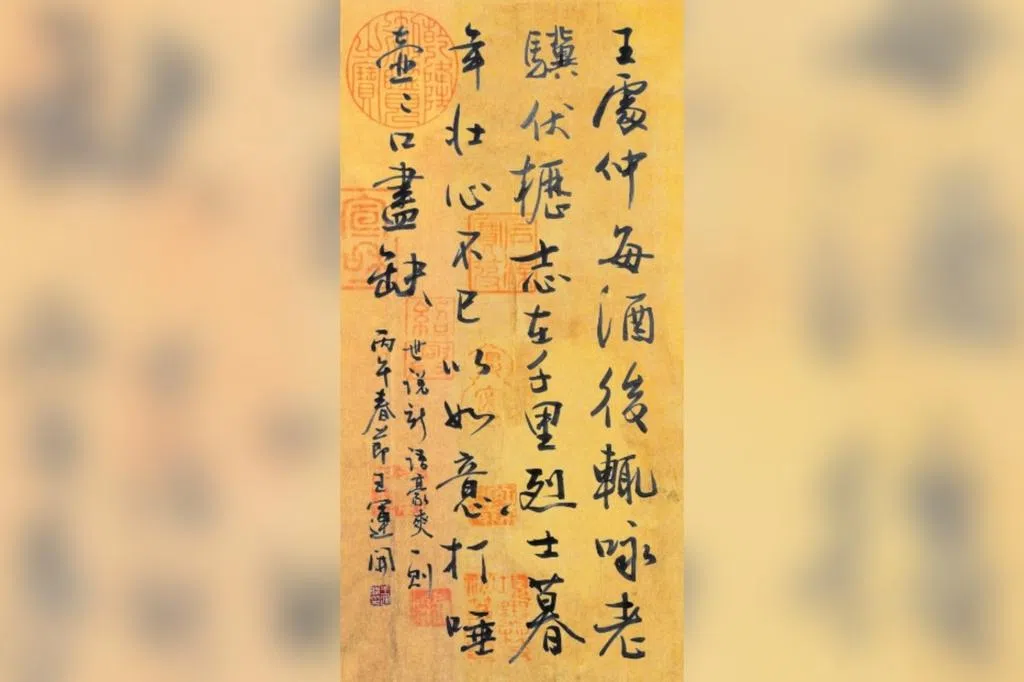 王處仲每酒後輒咏老
驥伏櫪志在千里烈士暮
年壯心不已以如意打唾
壺〻口盡缺
世説新語豪爽一則
丙午春節王運開